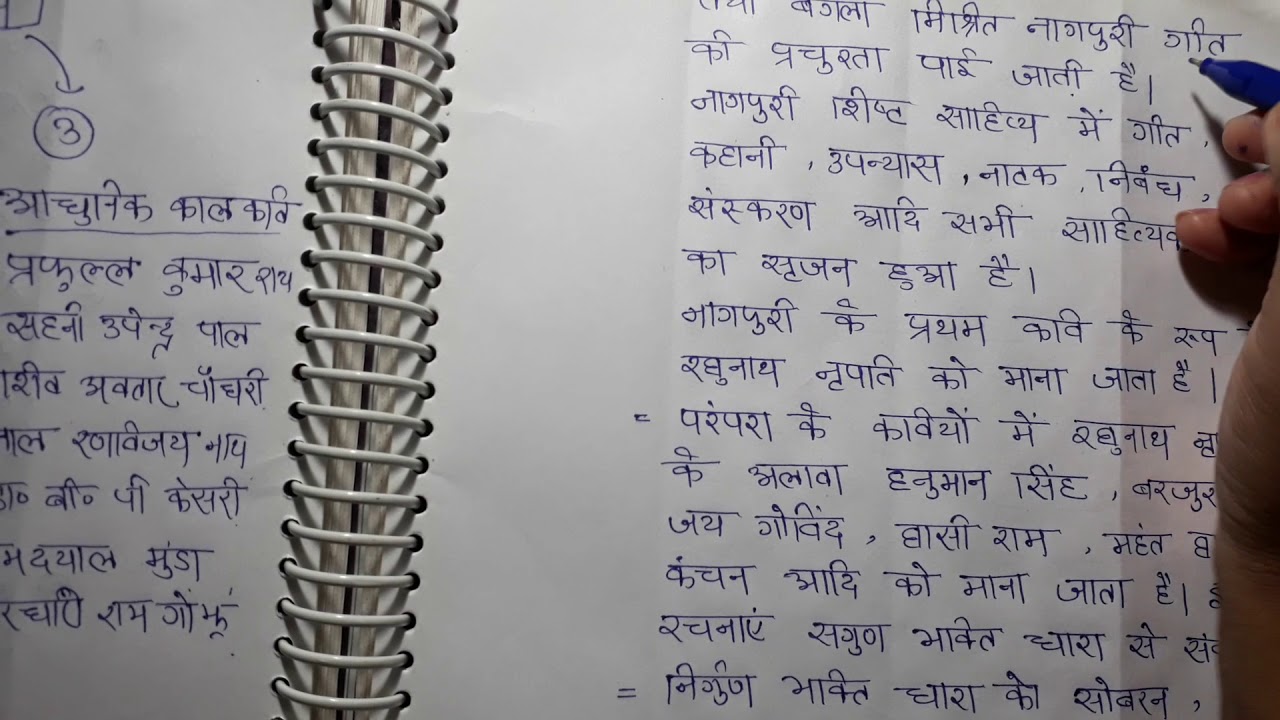 3
आधुनिक काल कवि
प्रफुल्ल कुमार राय
सहनी उपेन्द्र पाल
शिव अवतार चौधरी
लाल रणविजय नाथ
डा० बी० पी केसरी
मदयाल मुंडा
राम गोंझू
तथा बंगला मिश्रित नागपुरी गीत
की प्रचुरता पाई जाती है।
नागपुरी शिष्ट साहित्य में गीत,
कहानी, उपन्यास, नाटक, निबंध,
संस्करण आदि सभी साहित्यक
का सृजन हुआ है।
नागपुरी के प्रथम कवि के रूप
रघुनाथ नृपति को माना जाता है।
= परंपरा के कवियों में रघुनाथ
के अलावा हनुमान सिंह, बरजु
जय गोविंद, घासी राम, महंत
कंचन आदि को माना जाता है।
रचनाएं सगुण भक्ति धारा से
= निर्गुण भक्ति धारा को सोबरन,